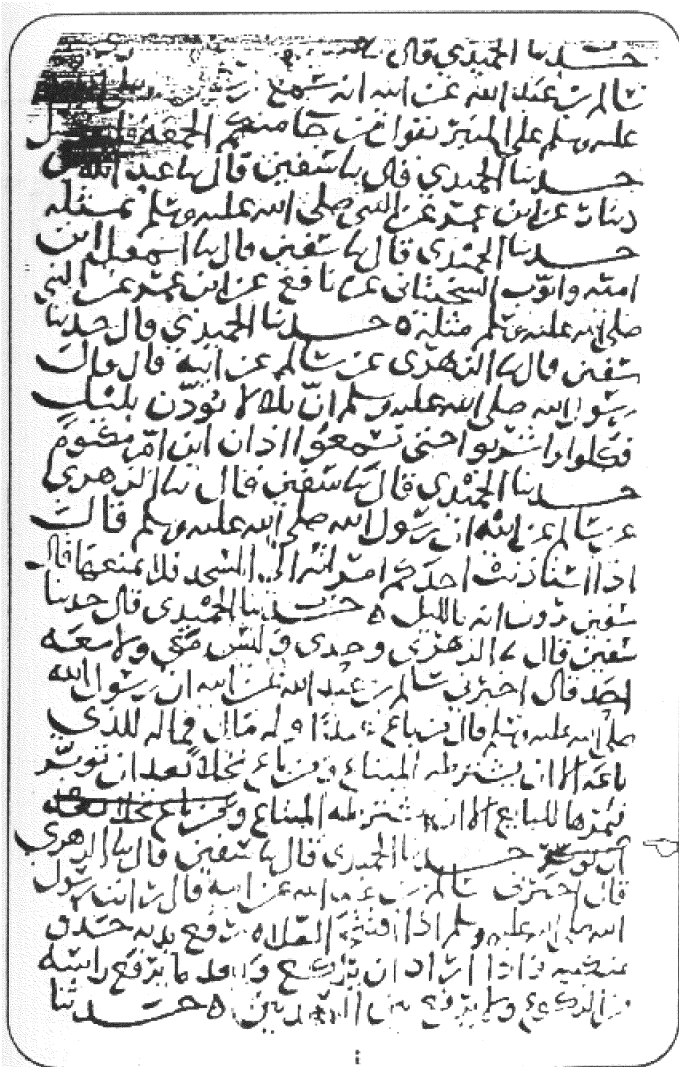 حدثنا الحميدي قال
سالم بن عبد الله عن ابيه انه سمع
عليه وسلم على المنبر يقول من جا منكم الجمعة فليغتسل
حدثنا الحميدي قال ثنا سفين قال ثنا عبد الله بن
دينار عن ابن عمر عن النبي صلى الله عليه وسلم بمثله
حدثنا الحميدي قال ثنا سفين قال ثنا اسمعيل ابن
امية وايوب السختياني عن نافع عن ابن عمر عن النبي
صلى الله عليه وسلم مثله ه حدثنا الحميدي قال حدثنا
سفين قال ثنا الزهري عن سالم عن ابيه قال قال
رسول الله صلى الله عليه وسلم ان بلالا يوذن بليل
فكلوا واشربوا حتى تسمعوا اذان ابن ام مكتوم
حدثنا الحميدي قال ثنا سفين قال ثنا الزهري
عن سالم عن ابيه ان رسول الله صلى الله عليه وسلم قال
اذا استاذنت احدكم امراته الى المسجد فلا يمنعها قال
سفين يرون انه بالليل ه حدثنا الحميدي قال حدثنا
سفين قال ثنا الزهري وحدي وليس معي ولا معه
احد قال اخبرني سالم بن عبد الله عن ابيه ان رسول الله
صلى الله عليه وسلم قال من باع عبدا وله مال فماله للذي
باعه الا ان يشترطه المبتاع ومن باع نخلا بعد ان توبر
فثمرها للبايع الا ان يشترطه المبتاع ومن باع نخلا بعد
ان توبر حدثنا الحميدي قال ثنا سفين قال ثنا الزهري
قال اخبرني سالم بن عبد الله عن ابيه قال رايت رسول
الله صلى الله عليه وسلم اذا افتتح الصلاة رفع يديه حذو
منكبيه واذا اراد ان يركع وبعد ما يرفع راسه
من الركوع ولا يرفع بين السجدتين ه حدثنا